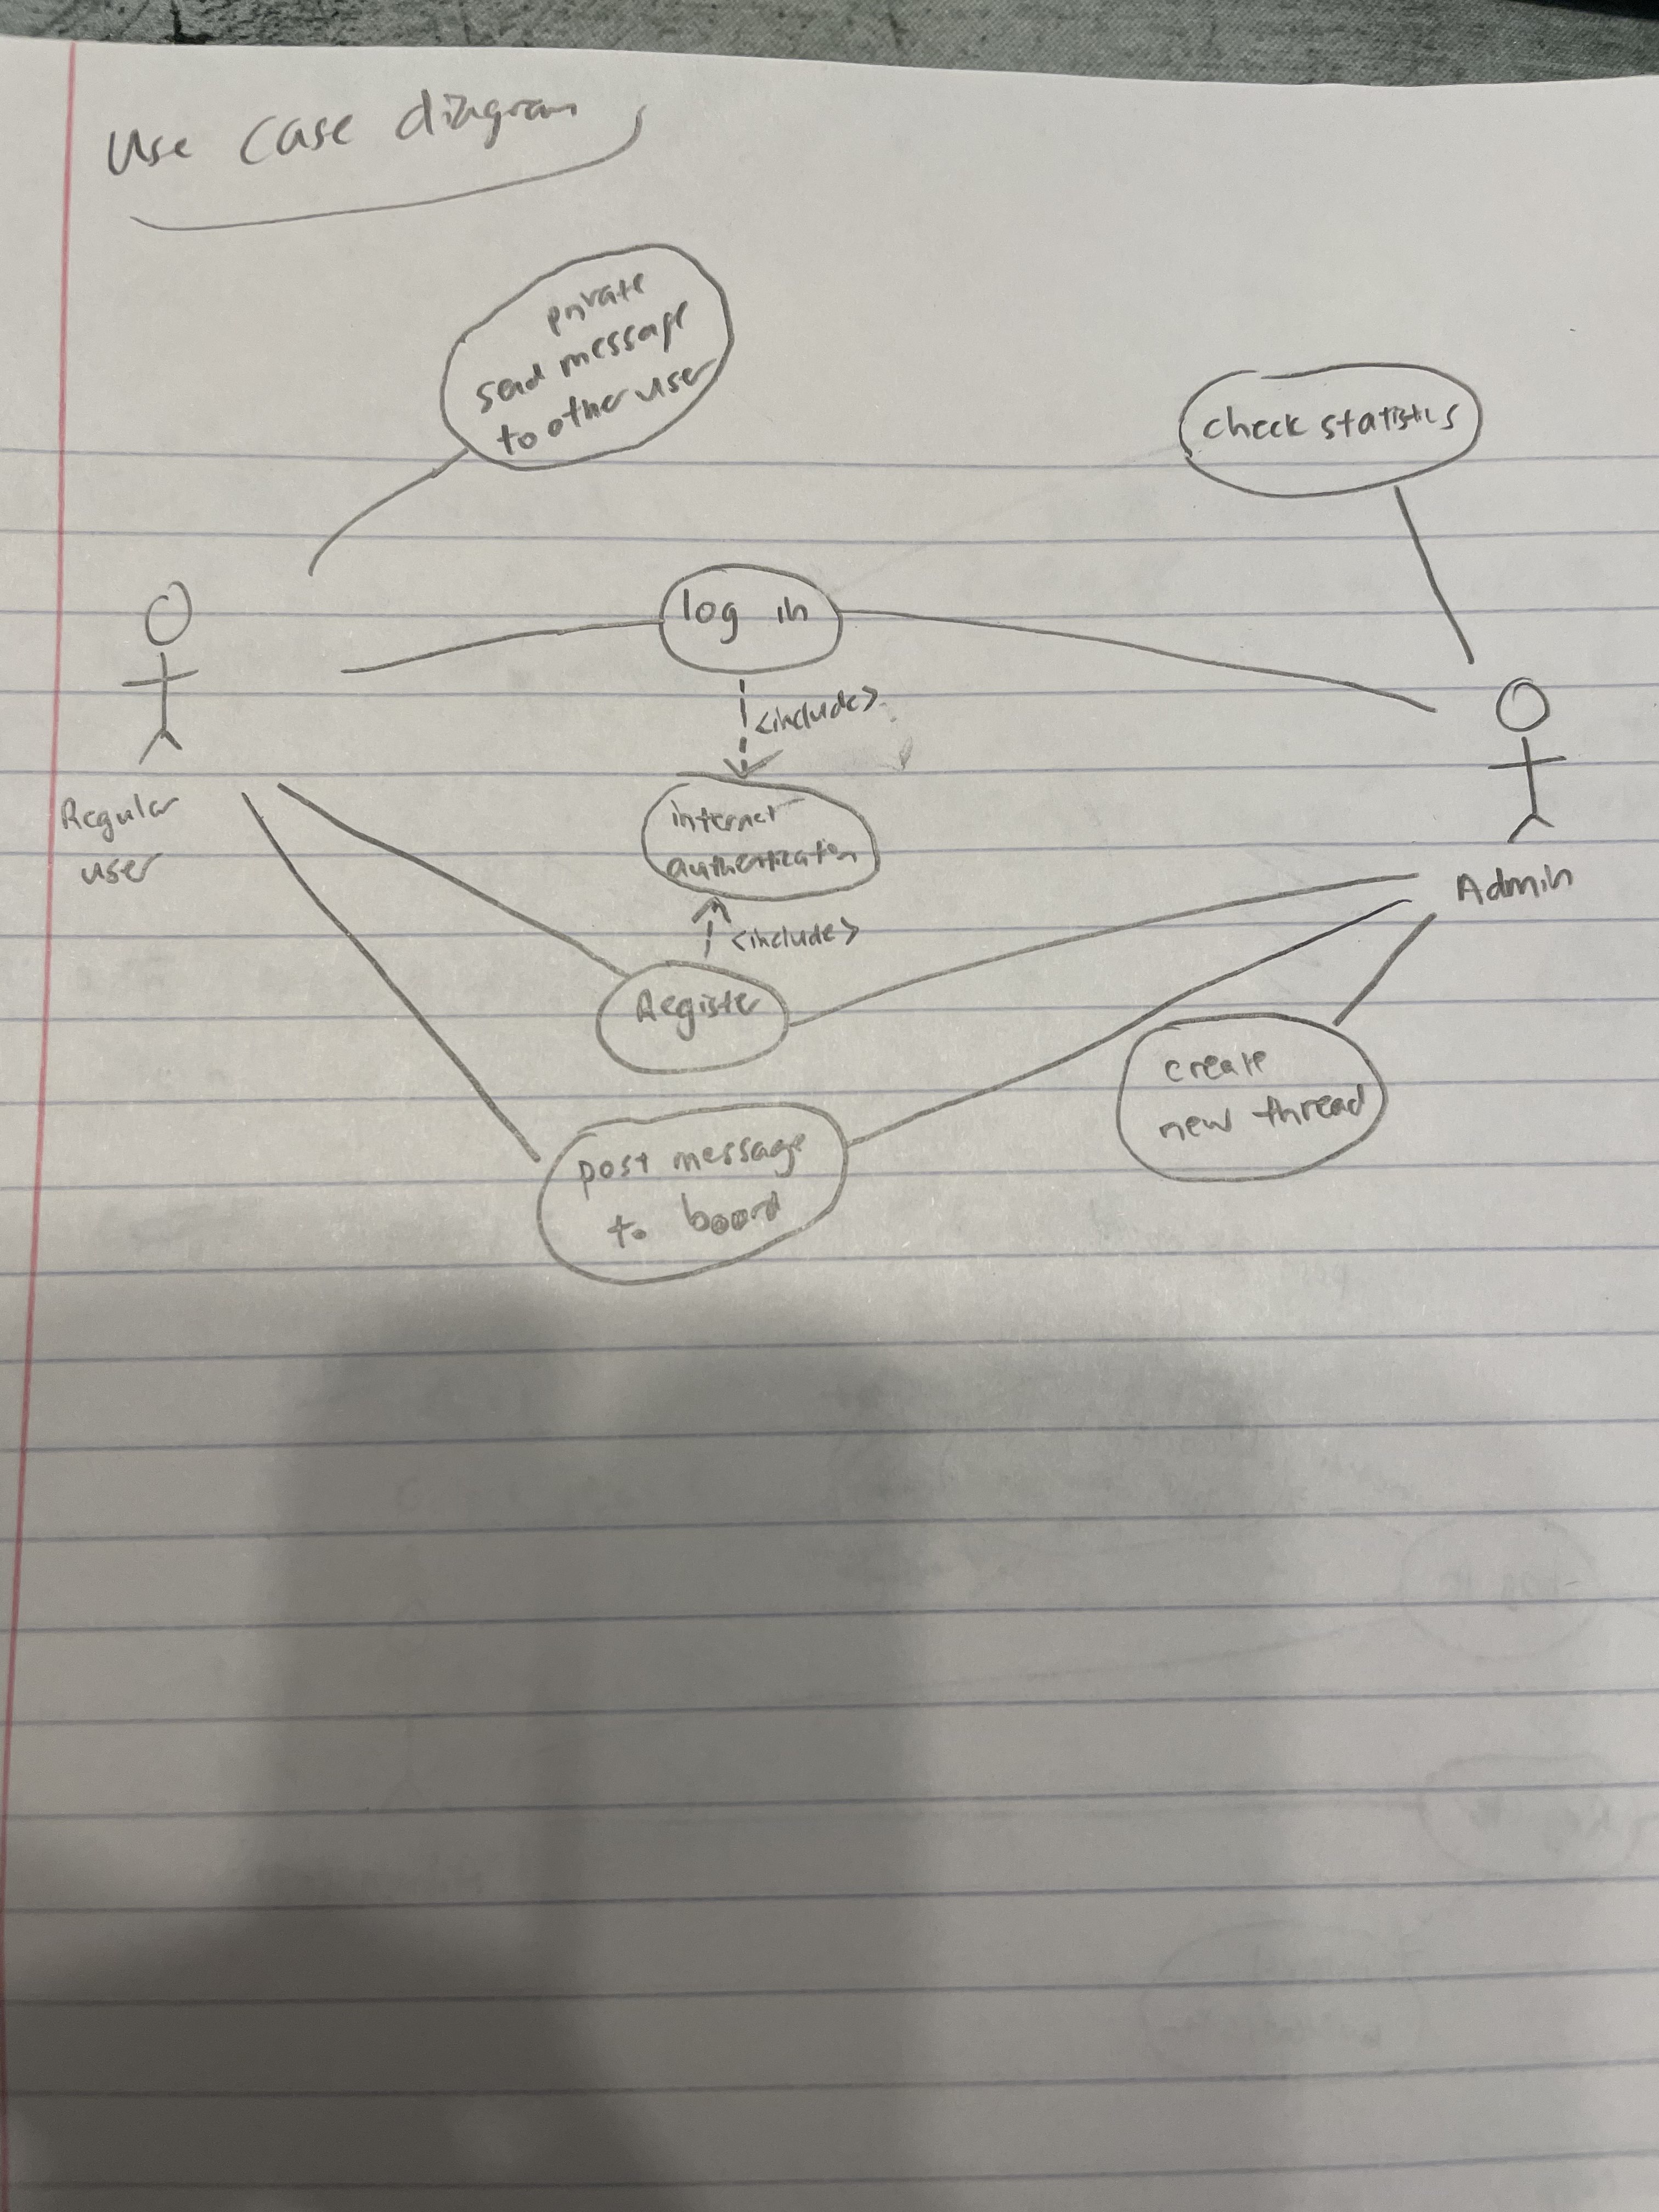 Use case diagram
private
send message
to other user
check statistics
log in
<include>
Regular
user
internet
authentication
Admin
<include>
Register
create
new thread
post message
to board